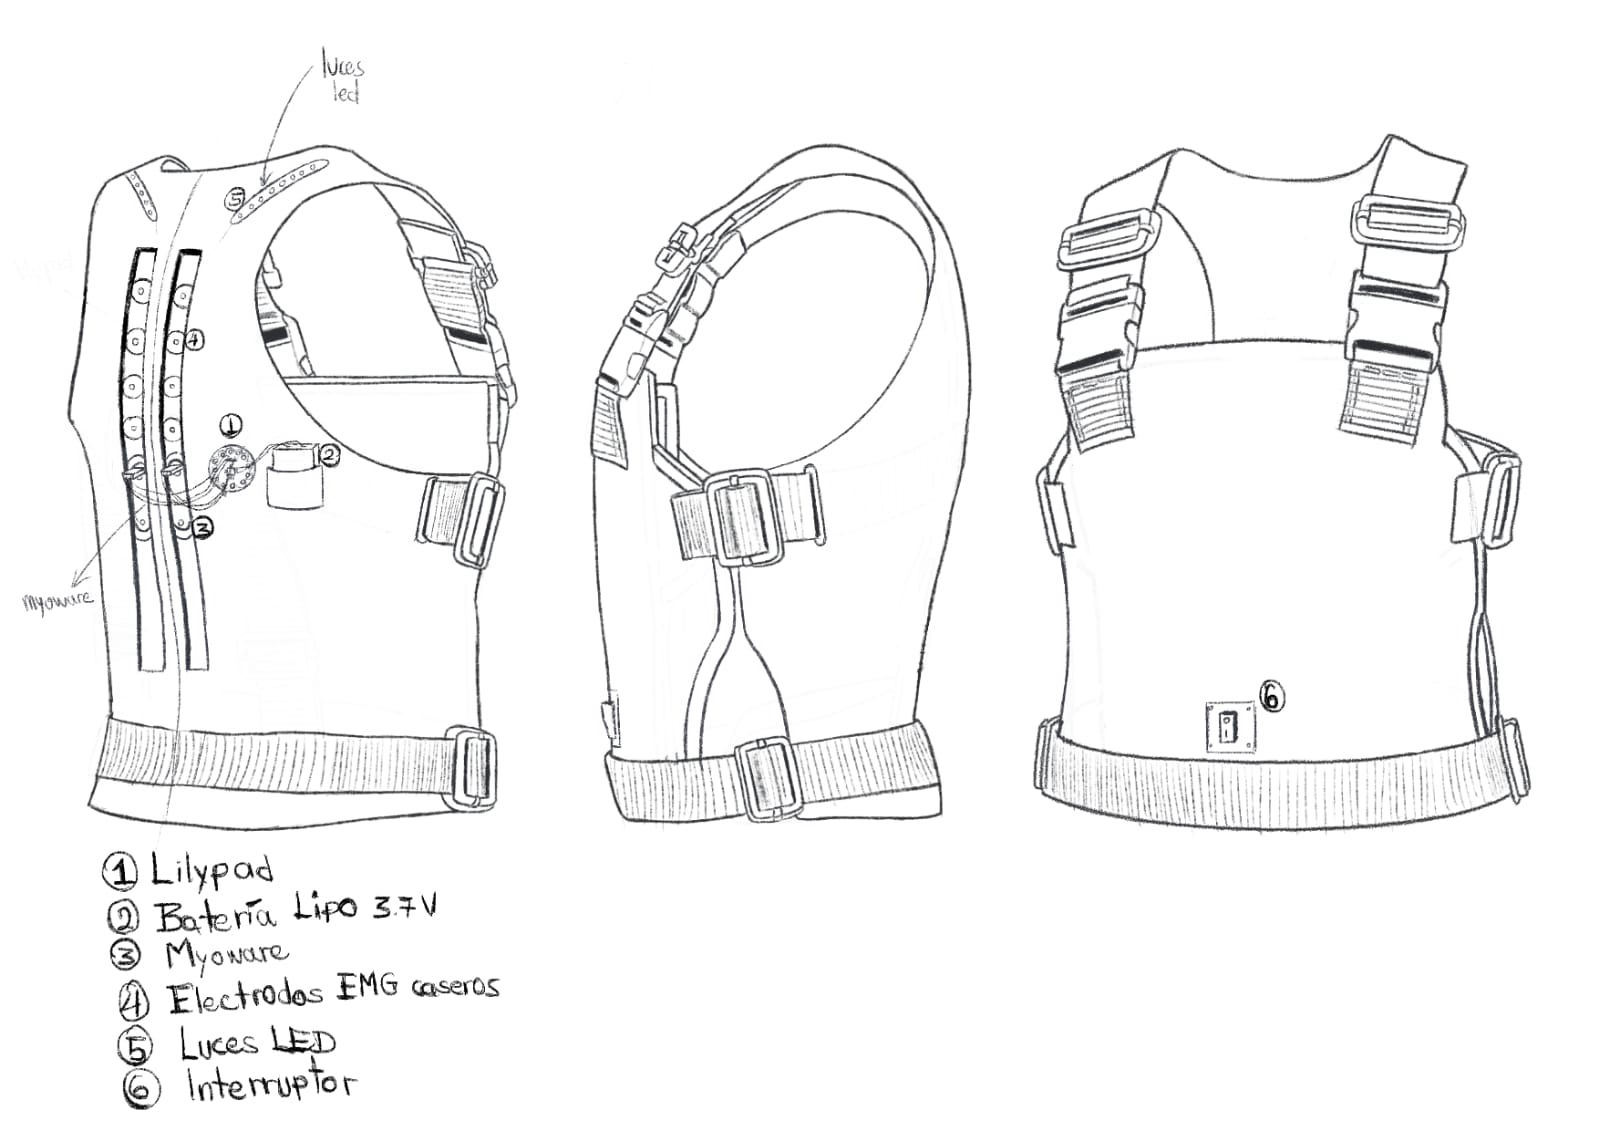 luces
led
5
4
1
2
3
myoware
6
1 Lilypad
2 Batería Lipo 3.7V
3 Myoware
4 Electrodos EMG caseros
5 Luces LED
6 Interruptor